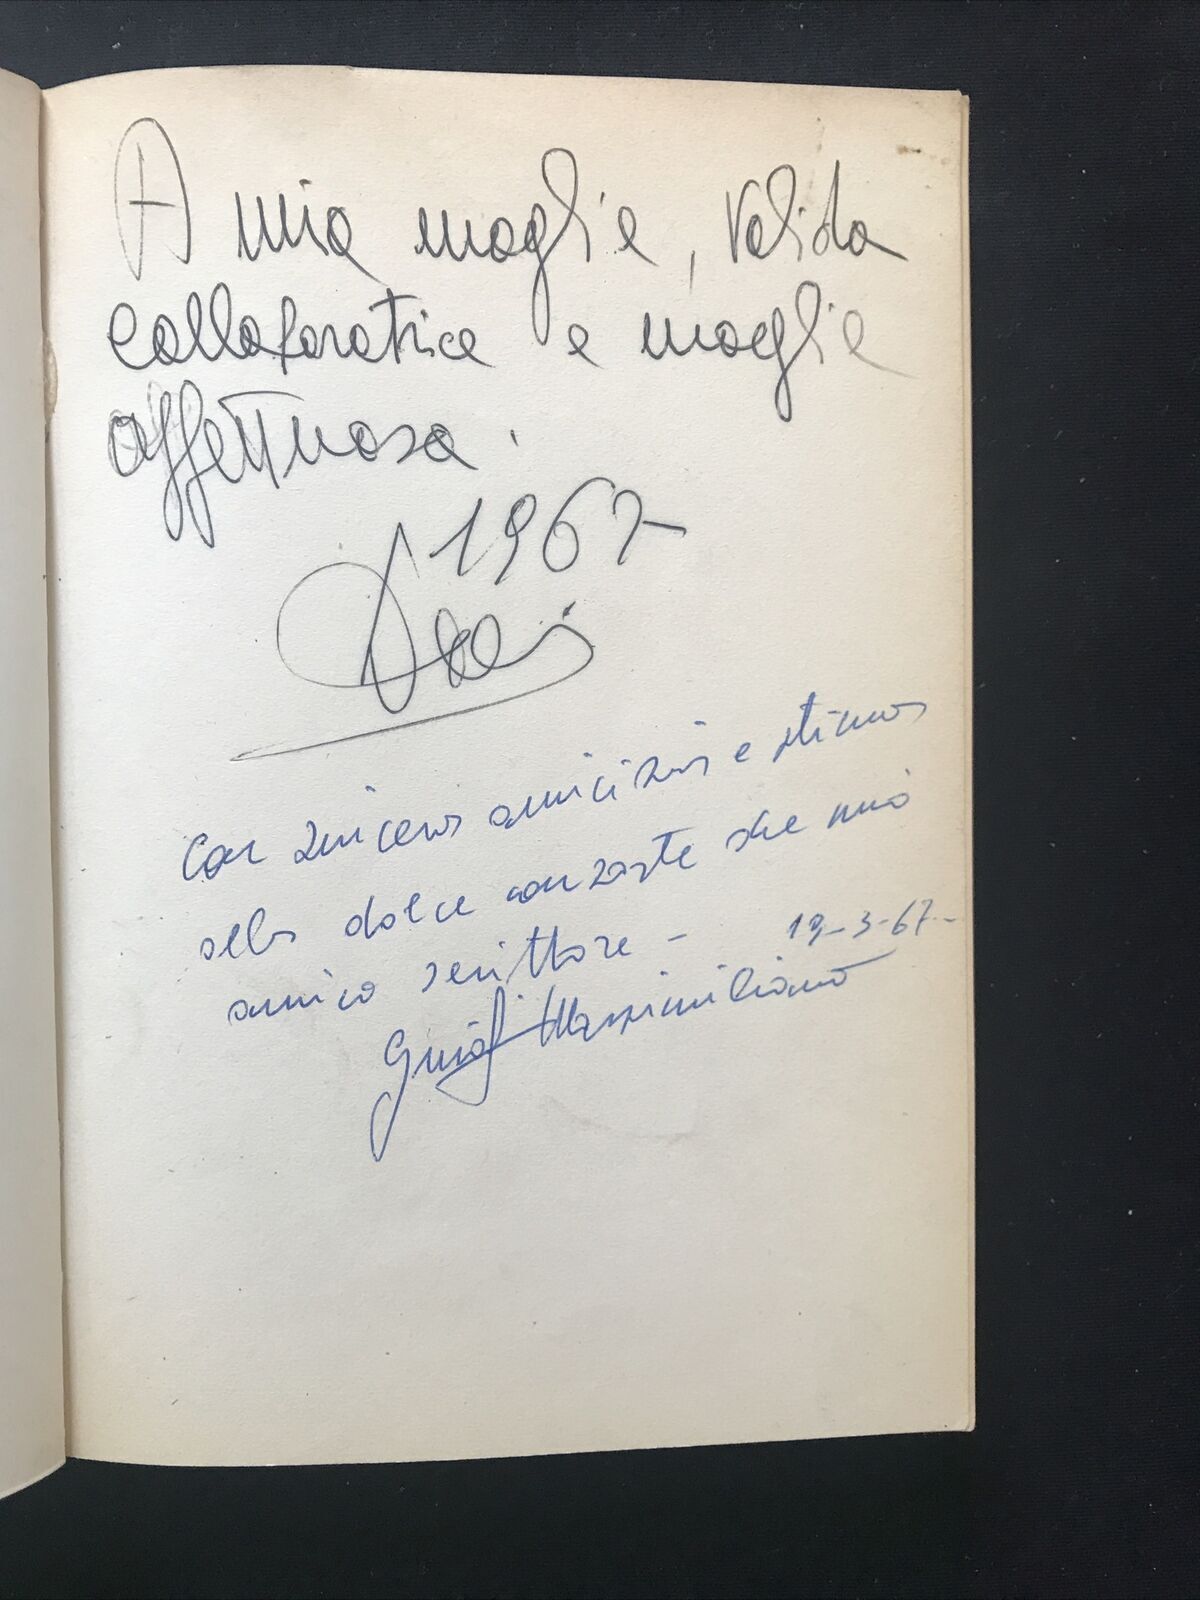 A mia moglie, valida
collaboratrice e moglie
affettuosa.
1967
Con sincera amicizia e stima
alla dolce consorte del mio
amico scrittore -
19-3-67-
Massimiliano